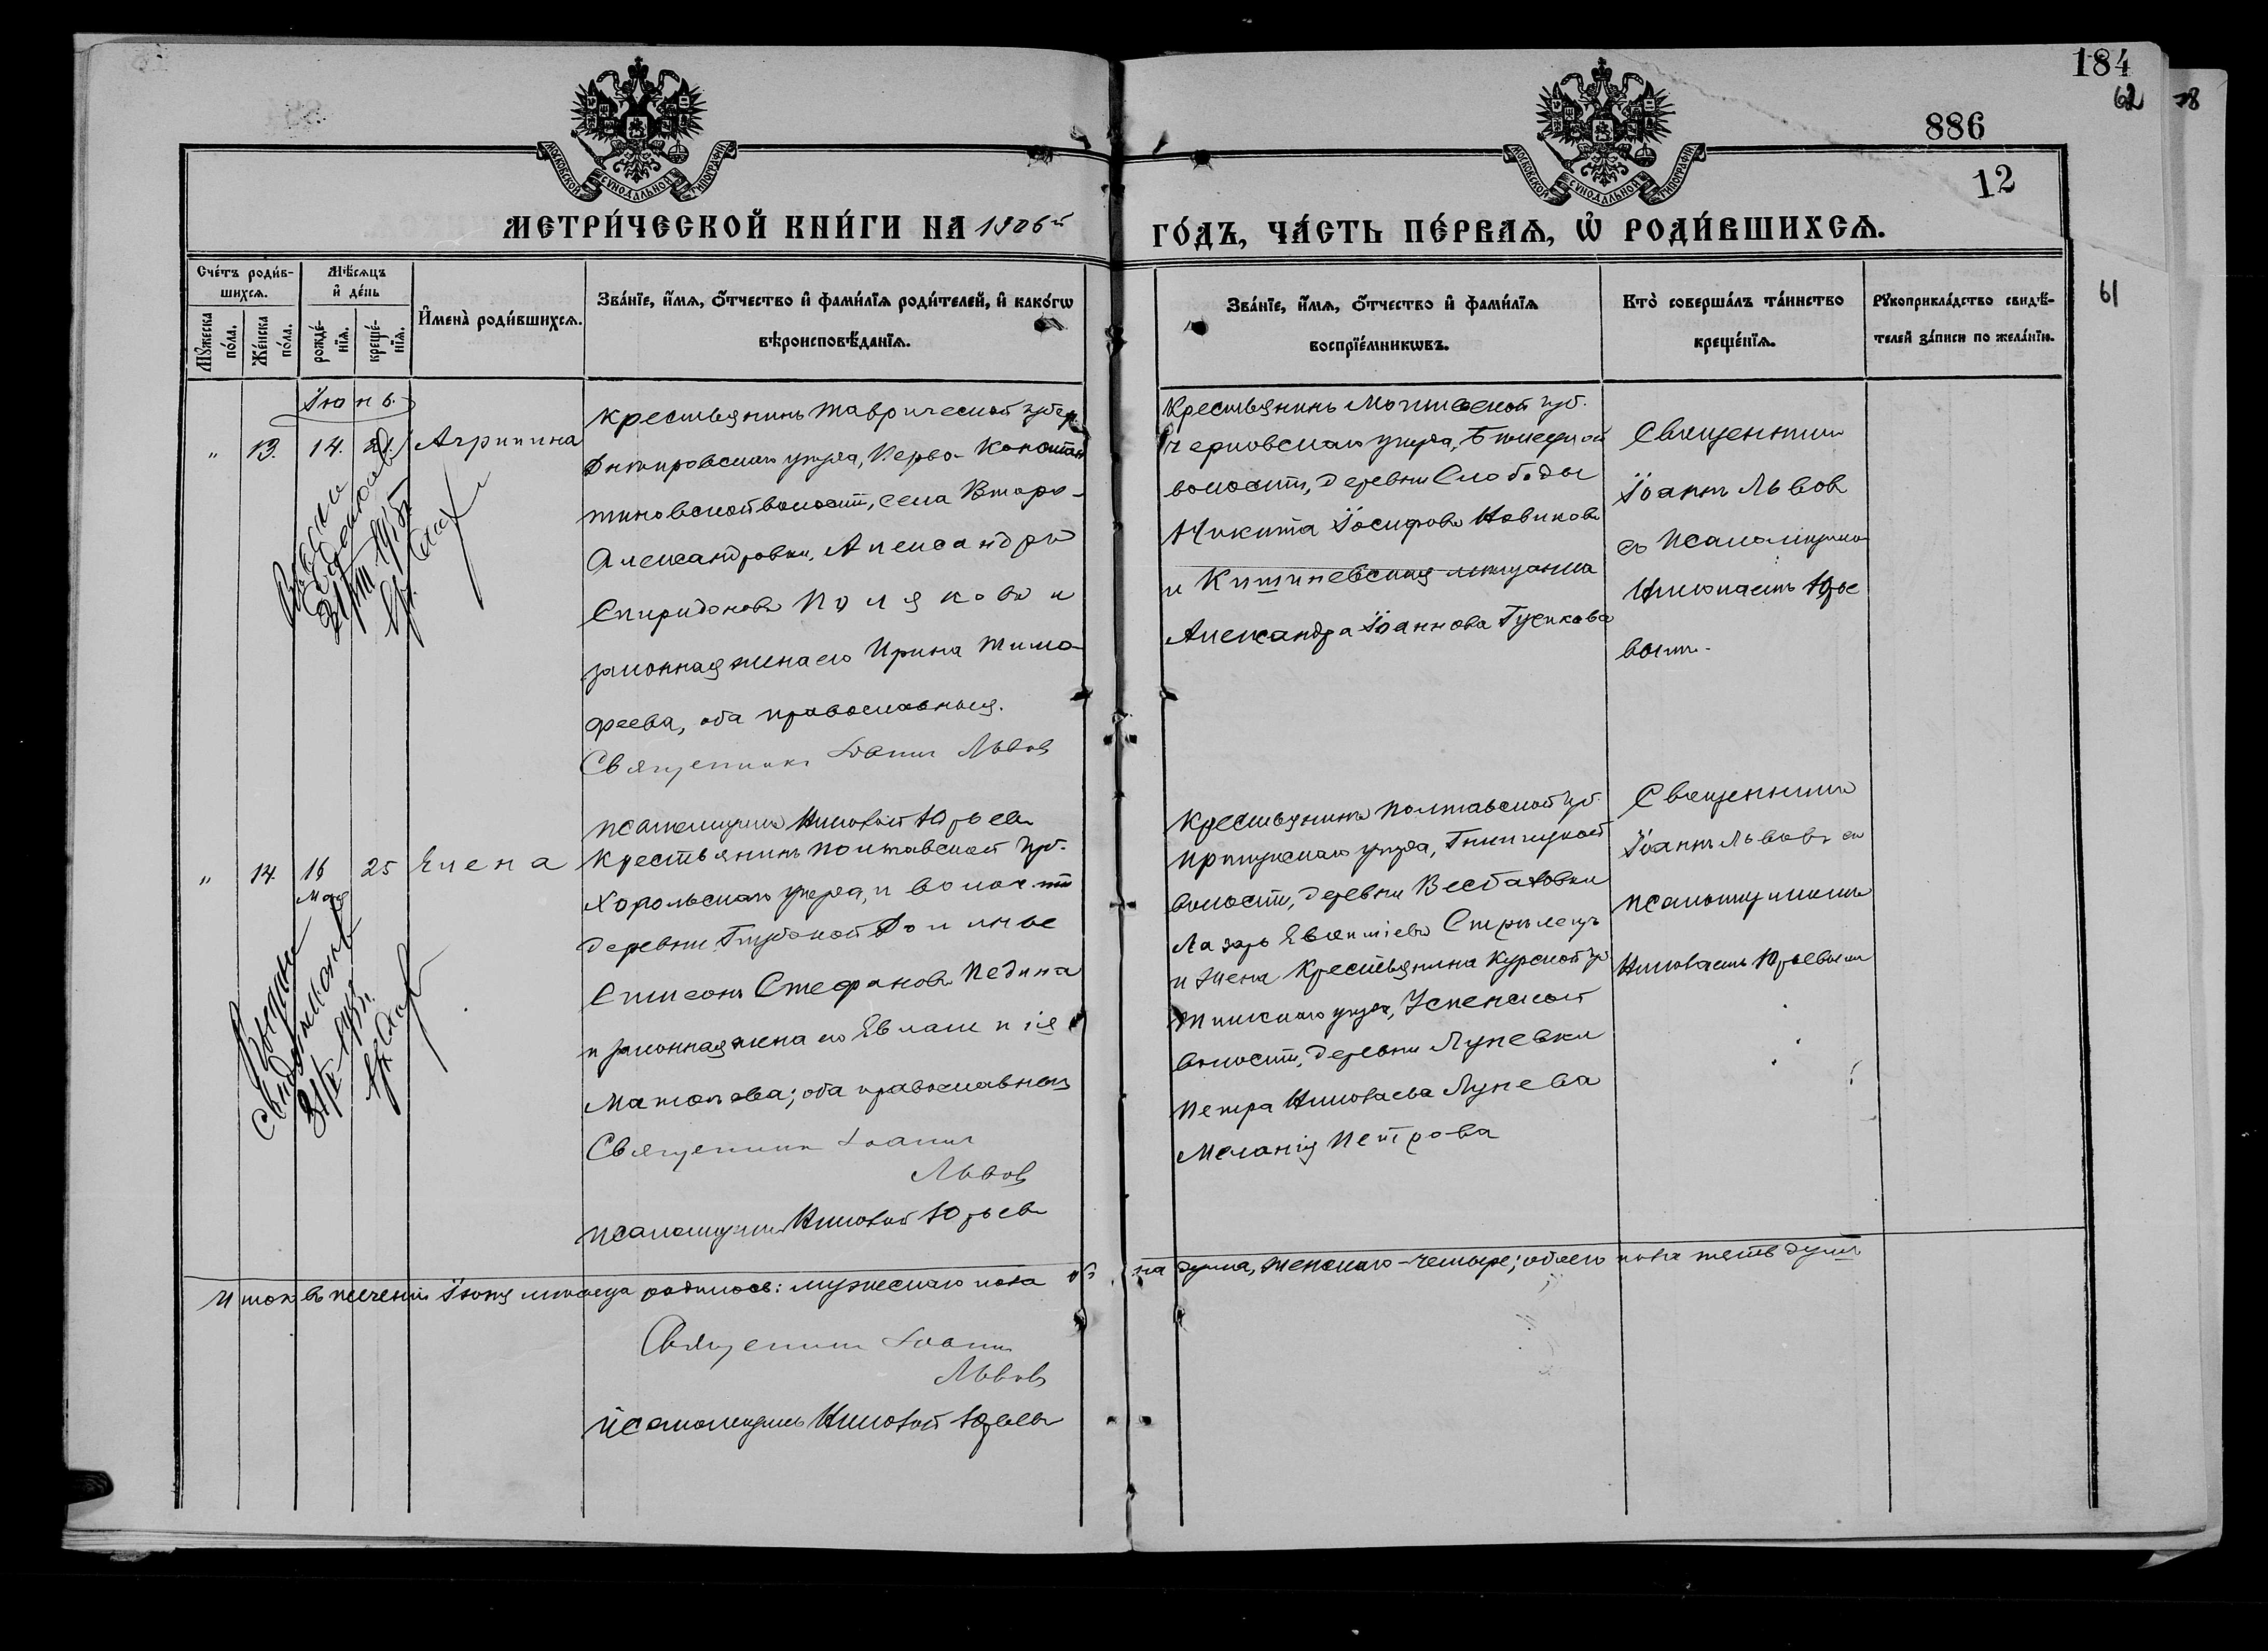 184
62 78
886
12
61
МОСКОВСКОЙ СѴНОДАЛЬНОЙ ТИПОГРАФІИ
МОСКОВСКОЙ СѴНОДАЛЬНОЙ ТИПОГРАФІИ
МЕТРИ́ЧЕСКОЙ КНИ́ГИ НА 1906й
ГО́ДЪ, ЧА́СТЬ ПЕ́РВАѦ, Ѡ҆ РОДИ́ВШИХСѦ.
Сче́тъ роди́в-
шихсѧ.
Мꙋ́жеска по́ла.
Же́нска по́ла.
Мѣ́сѧцъ и҆ де́нь
рожде́-
нїѧ.
креще́-
нїѧ.
И҆мена̀ роди́вшихсѧ.
Зва́нїе, и҆́мѧ, ѻ҆́тчество и҆ фами́лїѧ роди́телей, и҆ како́гѡ
вѣроисповѣ́данїѧ.
Зва́нїе, и҆́мѧ, ѻ҆́тчество и҆ фами́лїѧ
воспрїе́мникѡвъ.
Кто̀ соверша́лъ та́инство
креще́нїѧ.
Рꙋкоприкла́дство свидѣ́-
телей за́писи по жела́нїю.
Іюнь.
" 13. 14. Агрипина
Крестьянинъ Таврической губер
Днѣпровскаго уѣзда, Перво-Констан
тиновской волости, села Второ-
Александровки, Александръ
Спиридоновъ Поляковъ и
законная жена его Ирина Тимо
феева, оба православныя.
Священникъ Іоаннъ Львовъ
псаломщикъ Николай Юрьевъ
Крестьянинъ Могилевской губ.
Чериковскаго уѣзда,
волости, деревни Слободы
Никита Іосифовъ Новиковъ
и Кишиневская мѣщанка
Александра Іоаннова Гусикова
Священникъ
Іоаннъ Львовъ
съ псаломщикомъ
Николаемъ Юрье
вымъ.
" 14. 16 25 Елена
Мая
Крестьянинъ Полтавской губ.
Хорольскаго уѣзда, и волости
деревни Глубокой Долины
Симеонъ Стефановъ Педина
и законная жена его Евлампія
оба православныя
Священникъ Іоаннъ
Львовъ
псаломщикъ Николай Юрьевъ
Крестьянинъ Полтавской губ.
уѣзда,
волости, деревни
Лазарь Стрѣлецъ
и жена Крестьянина Курской губ
уѣзда, Успенской
волости, деревни Луневки
Петра Николаева Лунева
Меланія Петрова
Священникъ
Іоаннъ Львовъ съ
псаломщикомъ
Николаемъ Юрьевымъ
Итого въ теченіи Іюня мѣсяца родилось: мужескаго пола од
на душа, женскаго - четыре; обоего пола пять душъ
Священникъ Іоаннъ
Львовъ
псаломщикъ Николай Юрьевъ